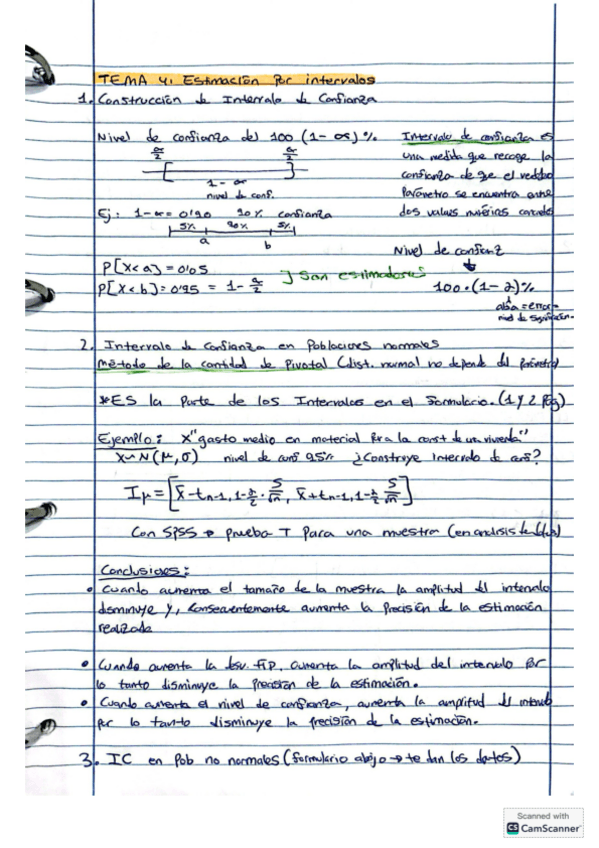 TEMA 4. Estimación por intervalos
1. Construcción de Intervalo de Confianza
Nivel de confianza del 100 (1 - α) %
α/2 α/2
1 - α
nivel de conf.
Ej: 1-α = 0'90 90% confianza
5% 90% 5%
a b
P[X<a] = 0'05
P[X<b] = 0'95 = 1 - α/2 } Son estimadores
Intervalo de confianza es
una medida que recoge la
confianza de que el verdadero
parámetro se encuentra entre
dos valores numéricos
Nivel de confianz
100·(1-α)%
alfa = error =
nivel de significación.
2. Intervalo de Confianza en Poblaciones normales
Método de la cantidad de Pivotal (dist. normal no depende del parámetro)
*ES la parte de los Intervalos en el formulario. (1 y 2 Pág)
Ejemplo: X "gasto medio en material para la const de una vivienda"
X~N(μ,σ) nivel de conf 95% ¿Construye intervalo de conf?
Iμ = [x̄ - tn-1, 1-α/2 · S/√n, x̄ + tn-1, 1-α/2 S/√n]
Con SPSS → prueba T para una muestra (en analisis)
Conclusiones:
• Cuando aumenta el tamaño de la muestra la amplitud del intervalo
disminuye y, consecuentemente aumenta la precisión de la estimación
realizada
• Cuando aumenta la desv. típ. aumenta la amplitud del intervalo por
lo tanto disminuye la precisión de la estimación.
• Cuando aumenta el nivel de confianza, aumenta la amplitud del intervalo
por lo tanto disminuye la precisión de la estimación.
3. IC en Pob no normales (formulario abajo → te dan los datos)
Scanned with
CS CamScanner